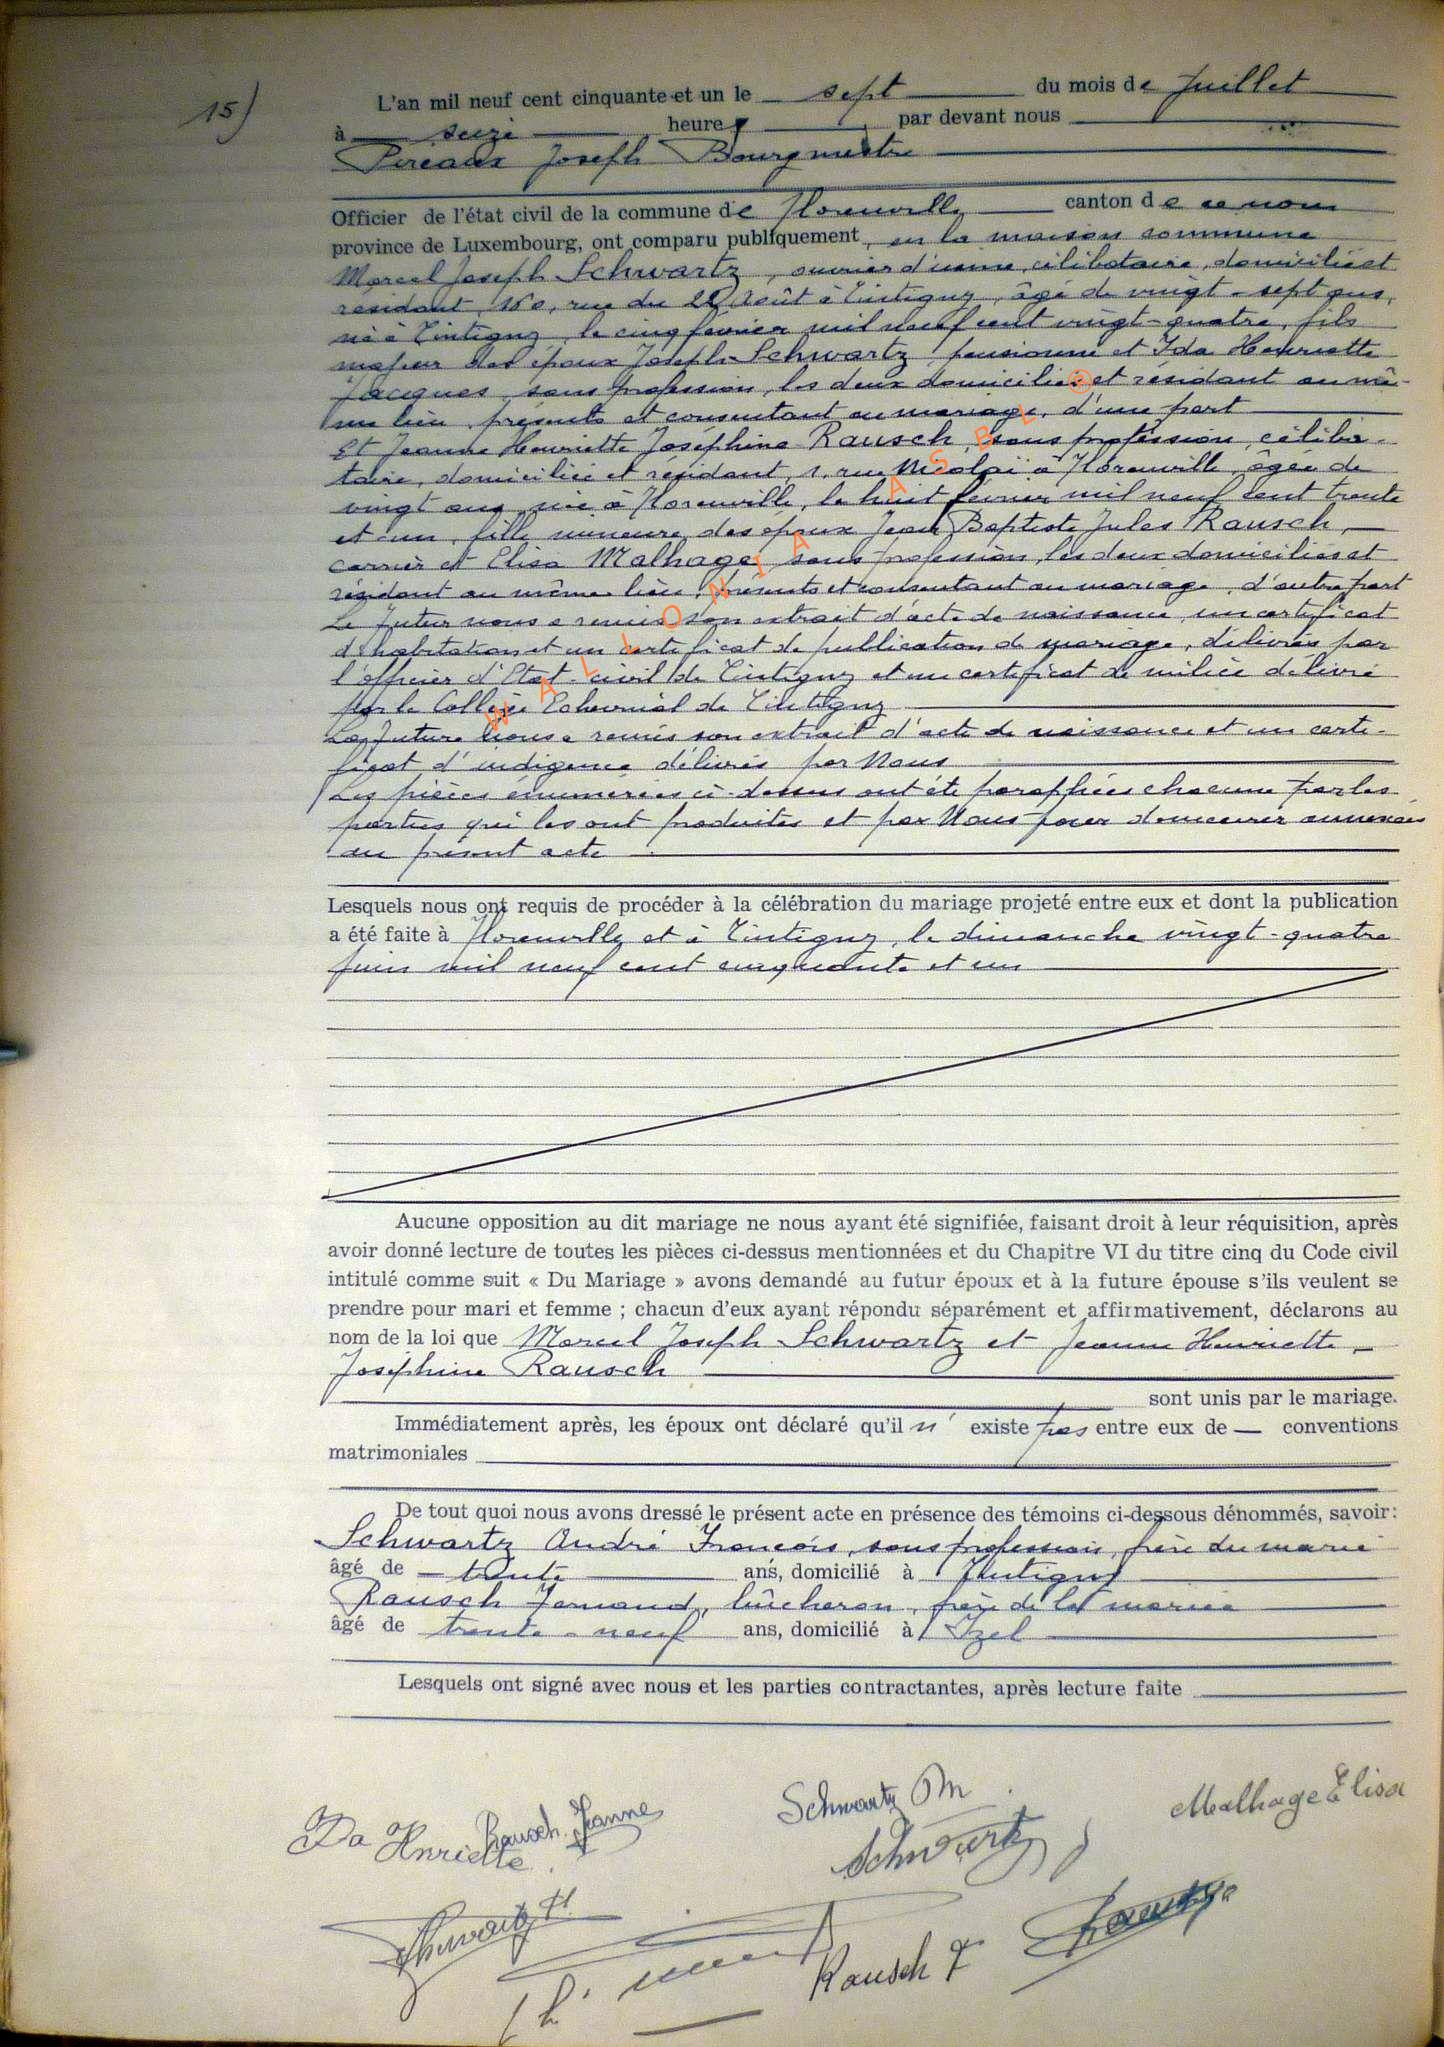 15)
L'an mil neuf cent cinquante et un le sept du mois de Juillet
à seize heure par devant nous
Joseph Bourgmestre
Officier de l'état civil de la commune de Florenville canton de ce nom
province de Luxembourg, ont comparu publiquement, en la maison commune
Marcel Joseph Schwartz, ouvrier d'usine, célibataire, domicilié et
résidant, rue du 22 Août à Tintigny, âgé de vingt-sept ans,
né à Tintigny, le cinq février mil neuf cent vingt-quatre, fils
majeur des époux Joseph Schwartz, pensionné et Ida Henriette
Jacques, sans profession, les deux domiciliés et résidant au mê-
me lieu, présents et consentant au mariage, d'une part
Et Jeanne Henriette Joséphine Rausch, sans profession, céliba-
taire, domiciliée et résidant, 1, rue Nicolaï à Florenville, âgée de
vingt ans, née à Florenville, le huit février mil neuf cent trente
et un, fille mineure des époux Jean Baptiste Jules Rausch,
carrier et Elisa Malhage, sans profession, les deux domiciliés et
résidant au même lieu, présents et consentant au mariage, d'autre part
Le Futur nous a remis son extrait d'acte de naissance, un certificat
d'habitation et un certificat de publication de mariage, délivrés par
l'officier d'Etat-civil de Tintigny et un certificat de milice délivré
par le Collège Echevinal de Tintigny
La Future nous a remis son extrait d'acte de naissance et un certi-
ficat d'indigence délivrés par Nous
Les pièces énumérées ci-dessus ont été paraphées chacune par les
parties qui les ont produites et par Nous pour demeurer annexées
au présent acte
WALLONIA ASBL ®
Lesquels nous ont requis de procéder à la célébration du mariage projeté entre eux et dont la publication
a été faite à Florenville et à Tintigny, le dimanche vingt-quatre
juin mil neuf cent cinquante et un
Aucune opposition au dit mariage ne nous ayant été signifiée, faisant droit à leur réquisition, après
avoir donné lecture de toutes les pièces ci-dessus mentionnées et du Chapitre VI du titre cinq du Code civil
intitulé comme suit « Du Mariage » avons demandé au futur époux et à la future épouse s'ils veulent se
prendre pour mari et femme ; chacun d'eux ayant répondu séparément et affirmativement, déclarons au
nom de la loi que Marcel Joseph Schwartz et Jeanne Henriette
Joséphine Rausch
sont unis par le mariage.
Immédiatement après, les époux ont déclaré qu'il n' existe pas entre eux de — conventions
matrimoniales
De tout quoi nous avons dressé le présent acte en présence des témoins ci-dessous dénommés, savoir:
Schwartz André François, sans profession, frère du marié
âgé de trente ans, domicilié à Tintigny
Rausch Fernand, bûcheron, frère de la mariée
âgé de trente-neuf ans, domicilié à Izel
Lesquels ont signé avec nous et les parties contractantes, après lecture faite
Schwartz M
Malhage Elisa
Rausch Jeanne
Ida Henriette
Schwartz
Schwartz A
Rausch F